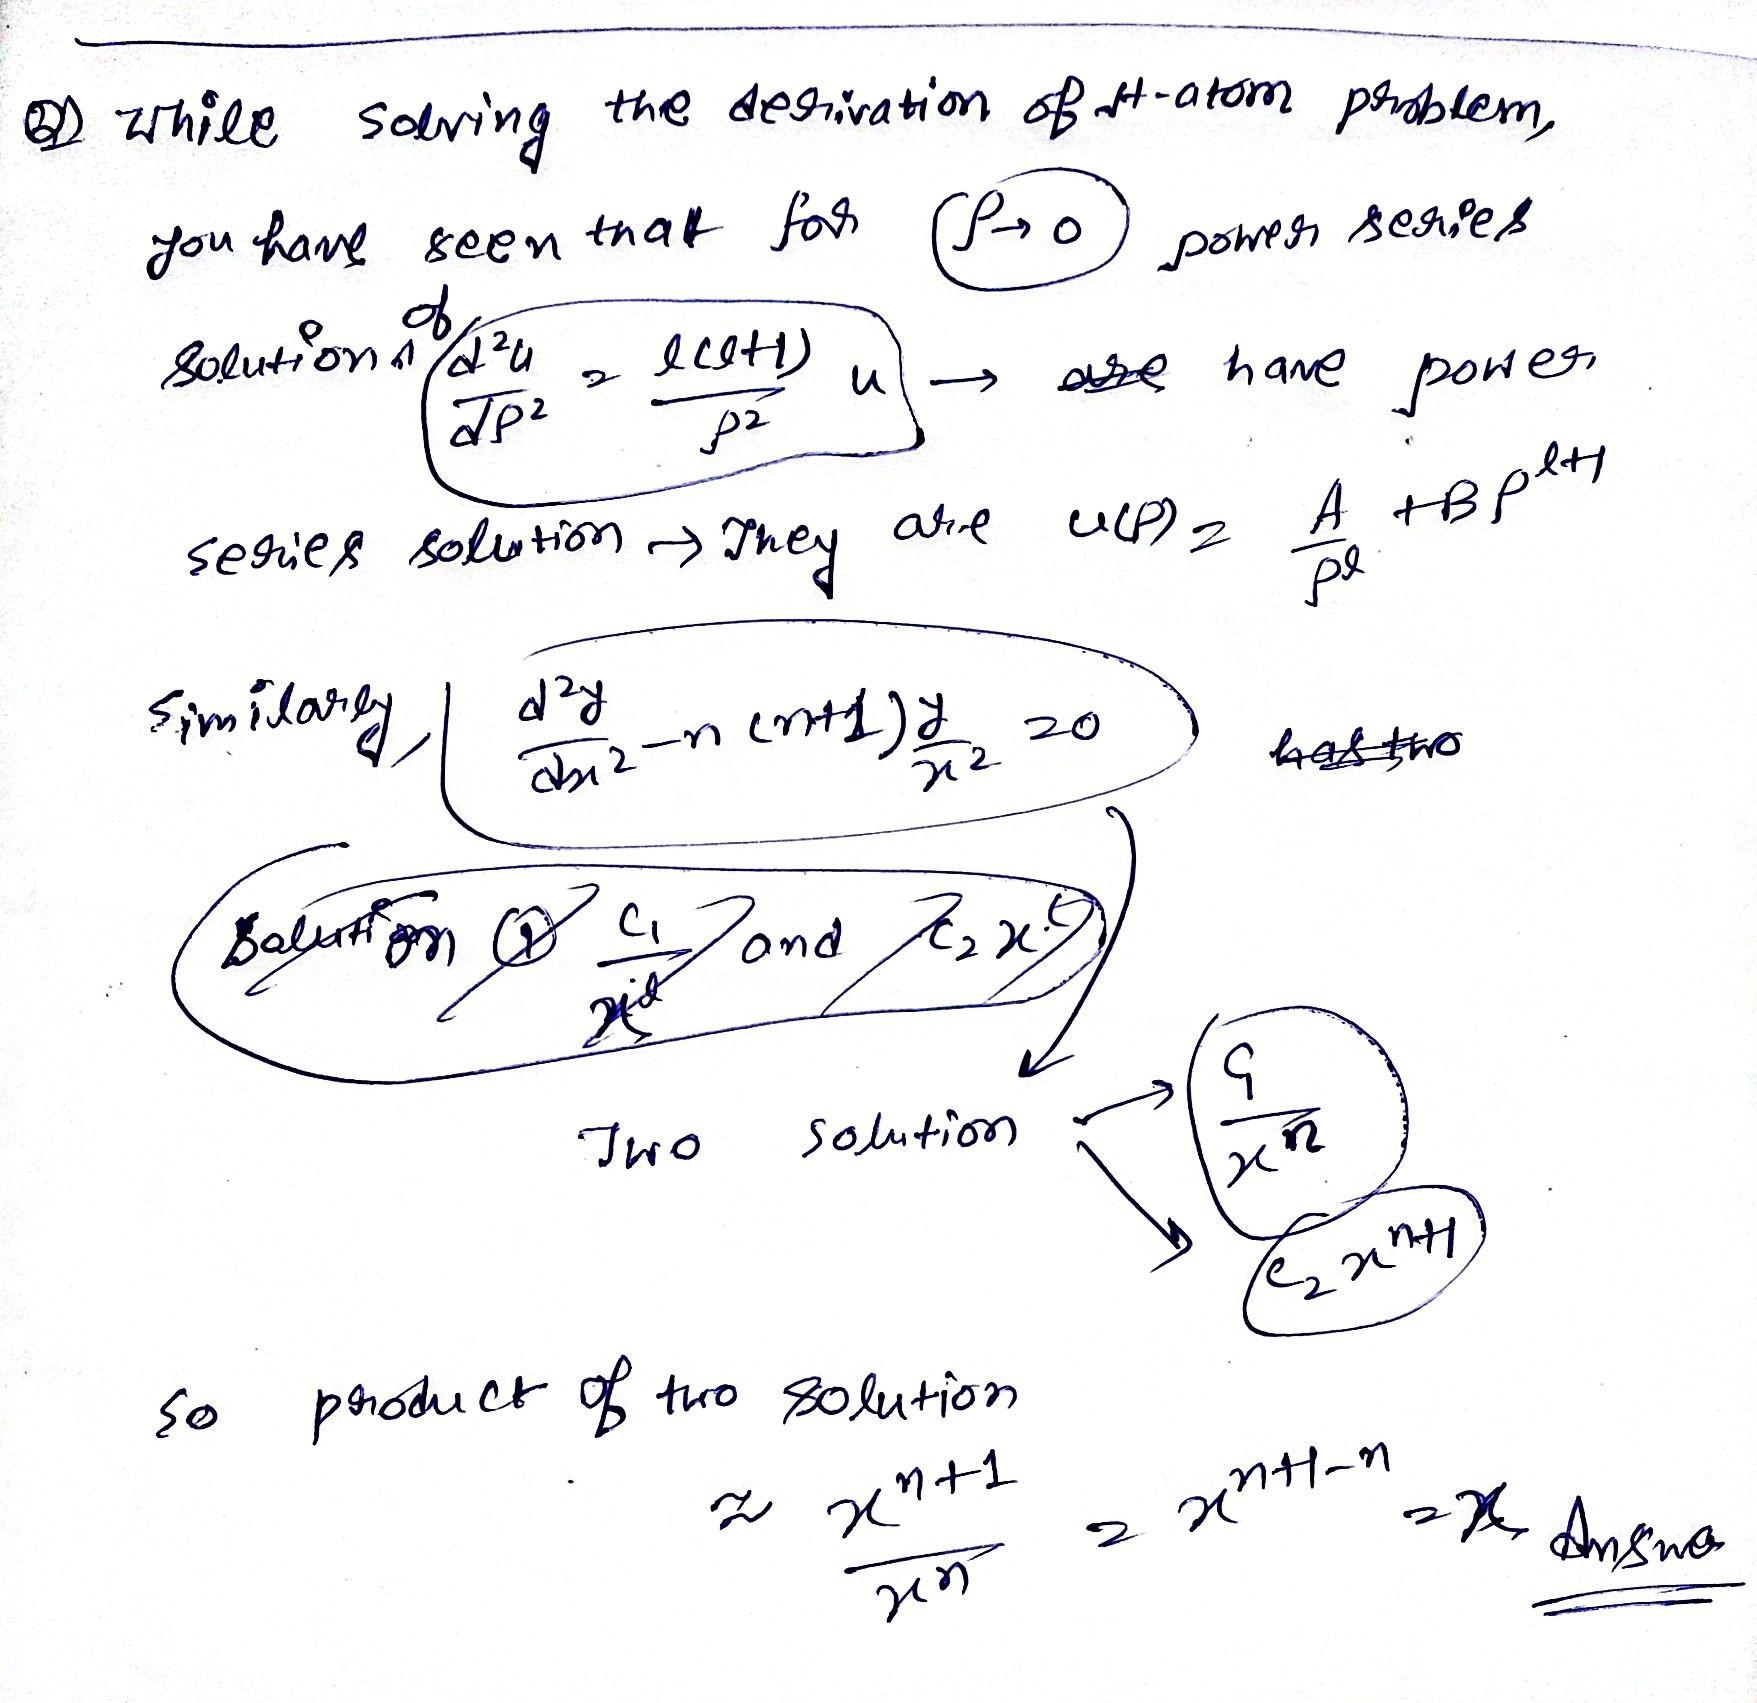 Q) While solving the derivation of H-atom problem,
you have seen that for (ρ→0) power series
solution of d²u/dρ² = l(l+1)/ρ² u → are have power
series solution → They are u(ρ) = A/ρ^l + Bρ^(l+1)
Similarly, d²y/dx² - n(n+1) y/x² = 0 has two
Solution ① C₁/x^l and C₂x
Two solution → C₁/x^n
→ C₂ x^(n+1)
So product of two solution
≈ x^(n+1)/x^n = x^(n+1-n) = x Answer